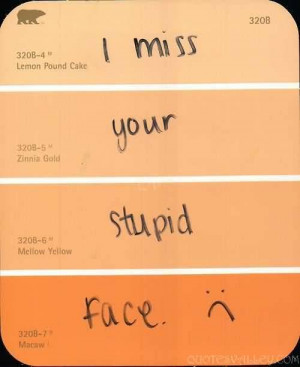 320B
320B-4
Lemon Pound Cake
I miss
your
320B-5
Zinnia Gold
stupid
320B-6
Mellow Yellow
Face. :(
320B-7
Macaw
QUOTESVALLEY.COM